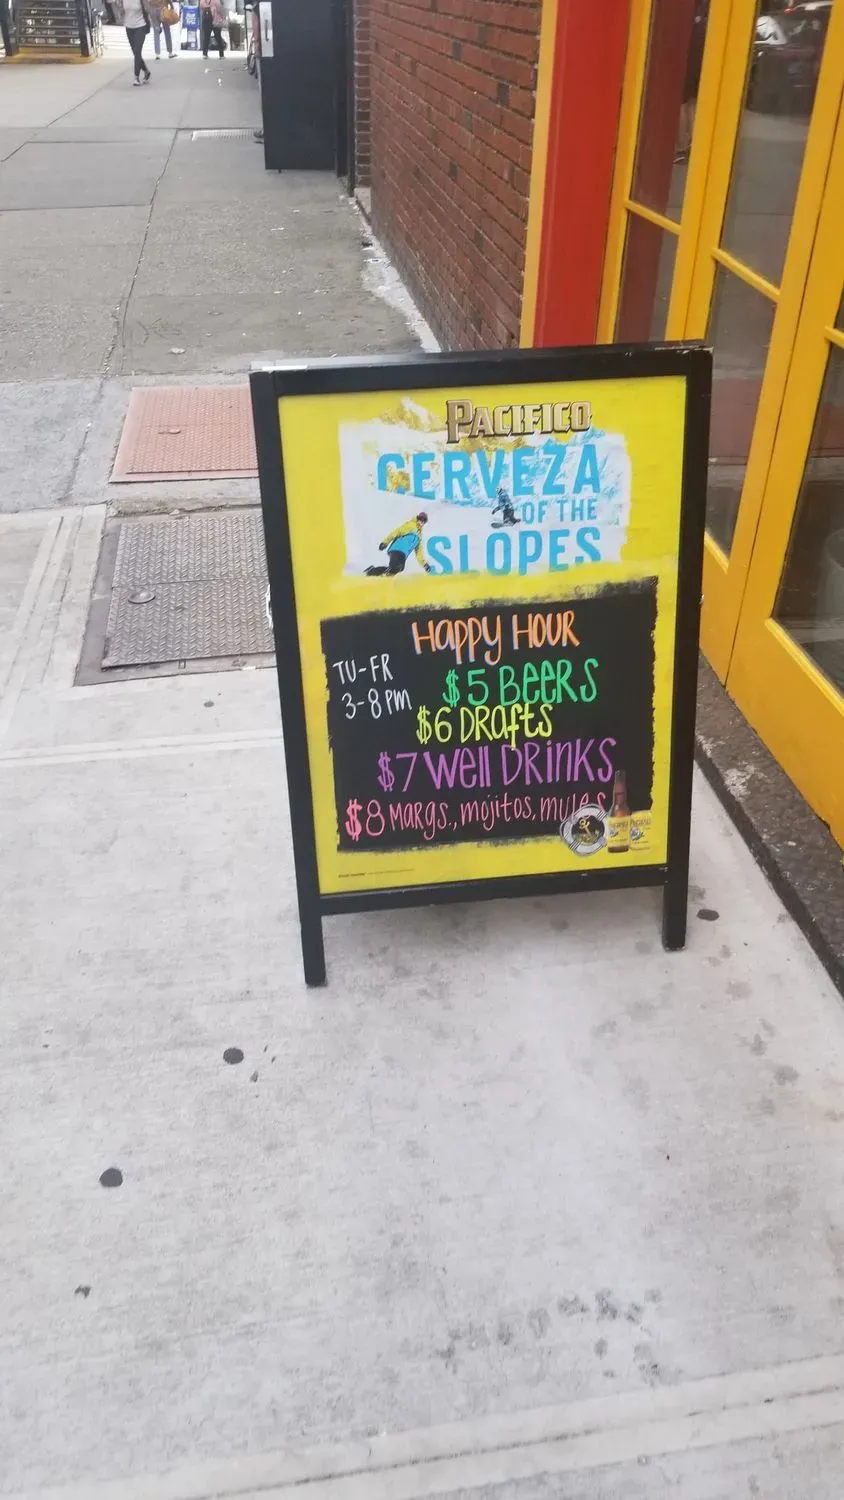 PACIFICO
CERVEZA
OF THE
SLOPES
HAPPY HOUR
TU-FR
3-8 PM
$5 BEERS
$6 DRAfts
$7 Well DRiNKS
$8 MARgS., mojitos, mules